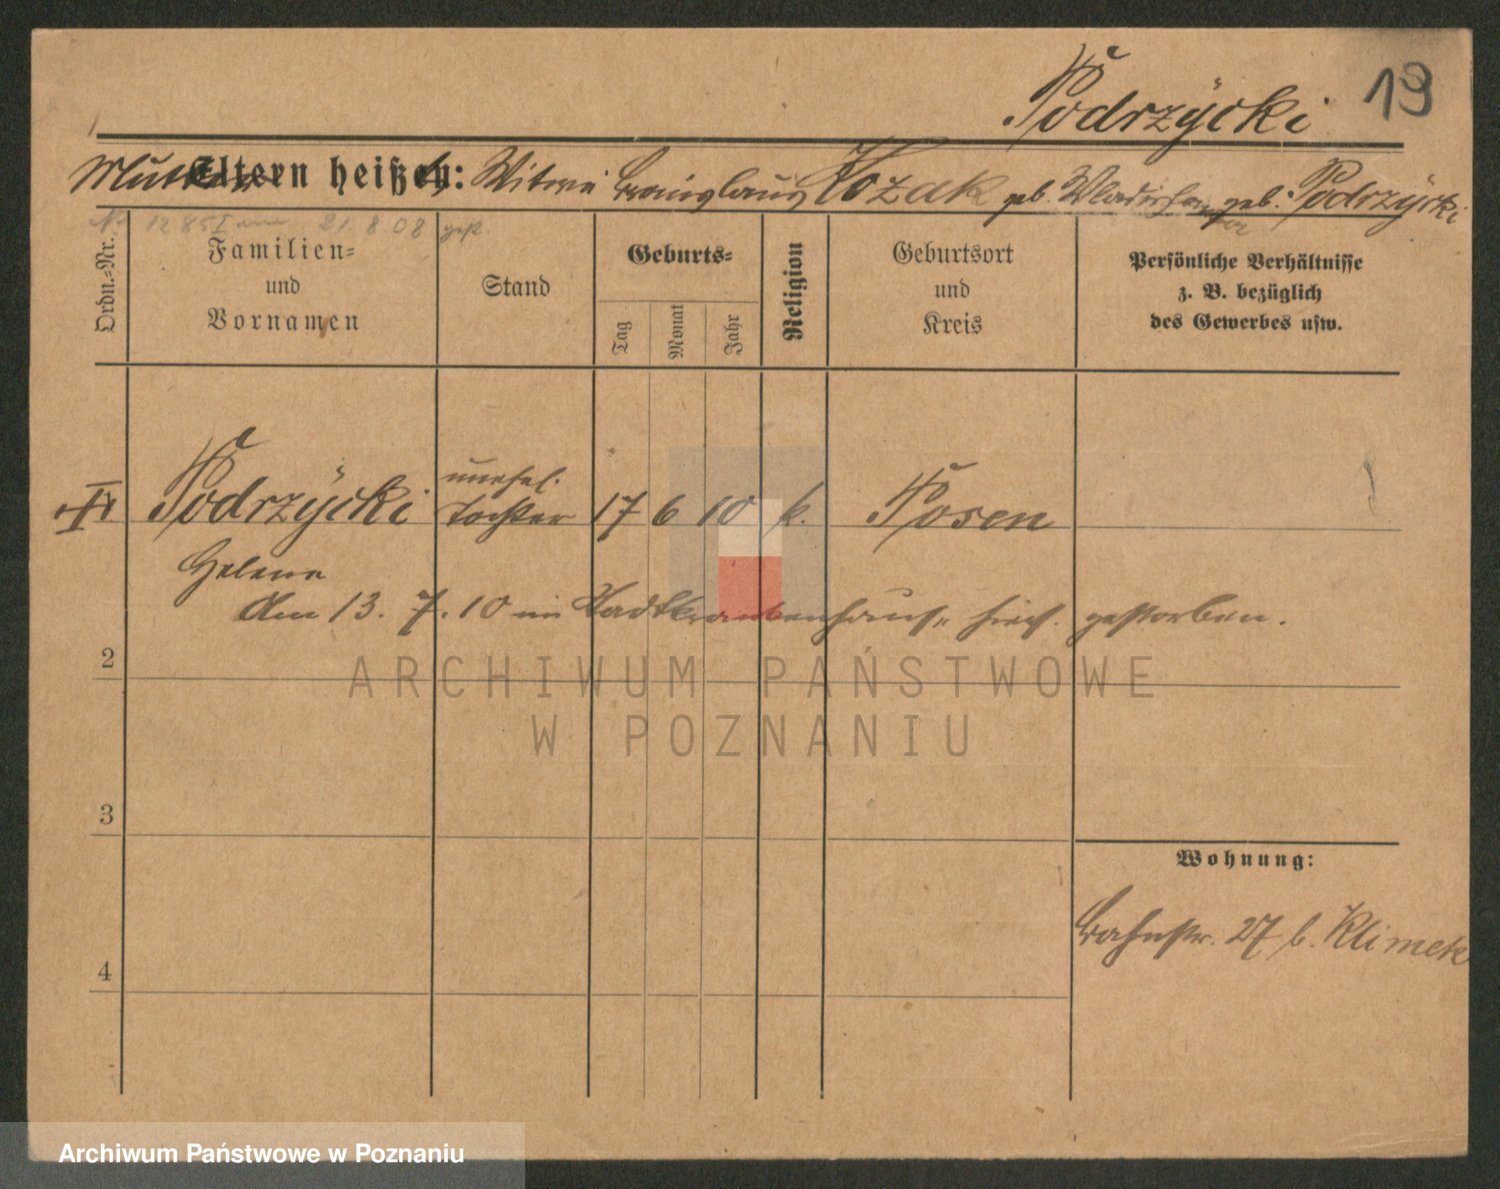 Podrzycki 19
Mutter heißt: Kozak geb. geb. Podrzycki
No 1285 I 21.8.08
Ordn.=Nr.
Familien=
und
Vornamen
Stand
Geburts=
Tag
Monat
Jahr
Religion
Geburtsort
und
Kreis
Persönliche Verhältnisse
z. B. bezüglich
des Gewerbes usw.
Podrzycki unehel. Tochter 17 6 10 k. Posen
Helene
Am 13. 7. 10 im Stadtkrankenhause gestorben.
2
ARCHIWUM PAŃSTWOWE
W POZNANIU
3
Wohnung:
Bahnstr. 27 b. Klimek
4
Archiwum Państwowe w Poznaniu